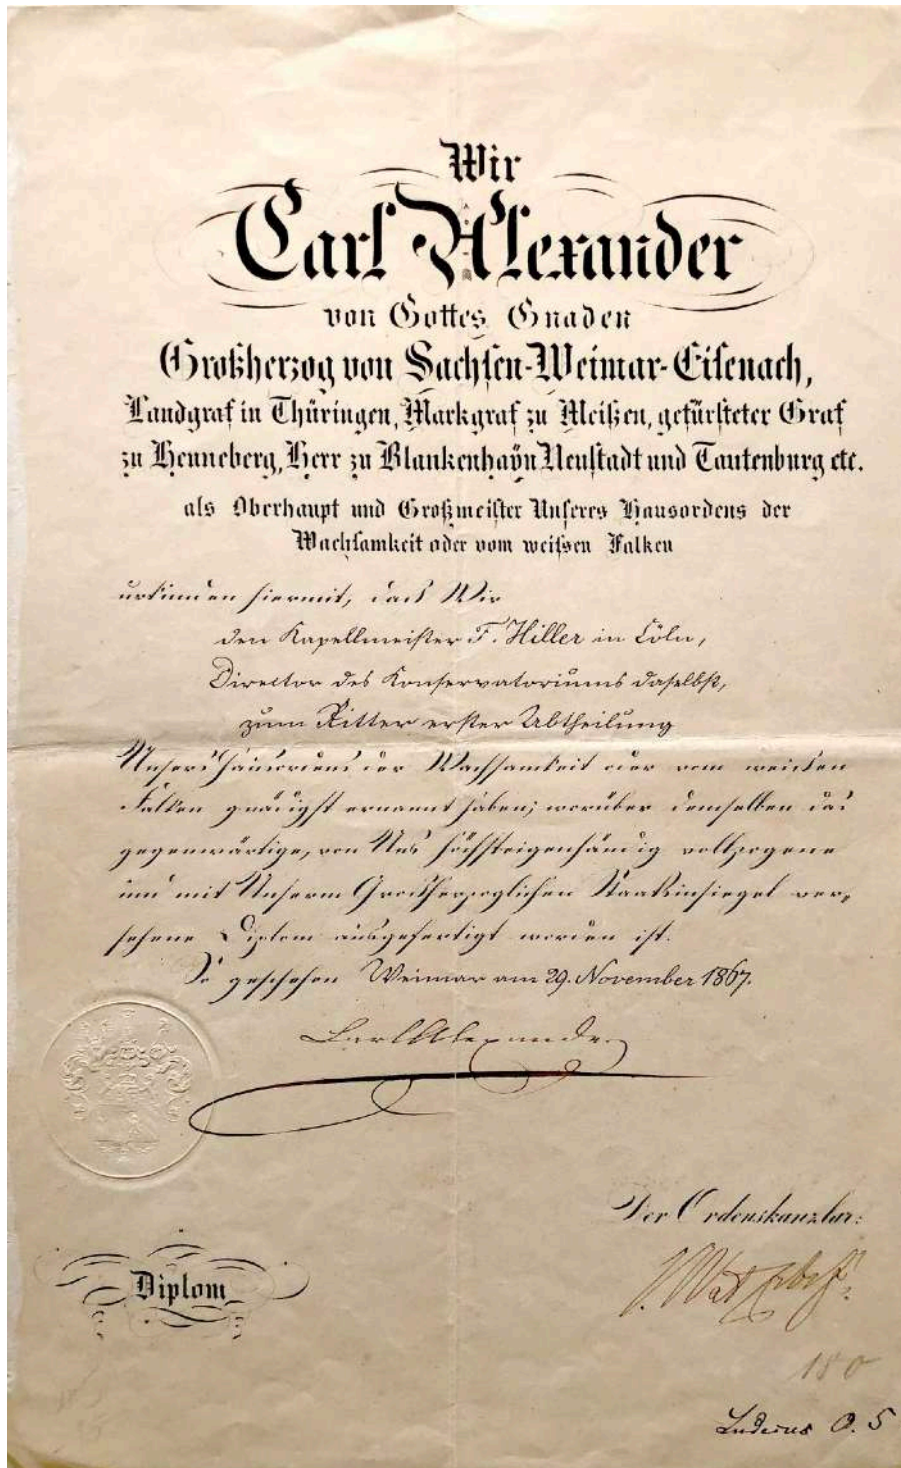 Wir
Carl Alexander
von Gottes Gnaden
Großherzog von Sachsen-Weimar-Eisenach,
Landgraf in Thüringen, Markgraf zu Meißen, gefürsteter Graf
zu Henneberg, Herr zu Blankenhaÿn Neustadt und Tautenburg etc.
als Oberhaupt und Großmeister Unseres Hausordens der
Wachsamkeit oder vom weissen Falken
urkunden hiermit, daß Wir
den Kapellmeister F. Hiller in Cöln,
Director des Konservatoriums daselbst,
zum Ritter erster Abtheilung
Unsers Hausordens der Wachsamkeit oder vom weißen
Falken gnädigst ernannt haben; worüber demselben das
gegenwärtige, von Uns höchsteigenhändig vollzogene
und mit Unserm Großherzoglichen Staatsinsiegel ver-
sehene Diplom ausgefertigt worden ist.
So geschehen Weimar am 29. November 1867.
Carl Alexander
Der Ordenskanzler:
Diplom
180